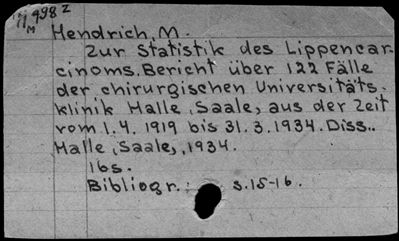 11 498 Z
M
Hendrich, M.
Zur Statistik des Lippencar-
cinoms. Bericht über 122 Fälle
der chirurgischen Universitäts-
klinik Halle, Saale, aus der Zeit
vom 1. 4. 1919 bis 31. 3. 1934. Diss..
Halle, Saale, 1934.
16s.
Bibliogr.: s. 15-16.